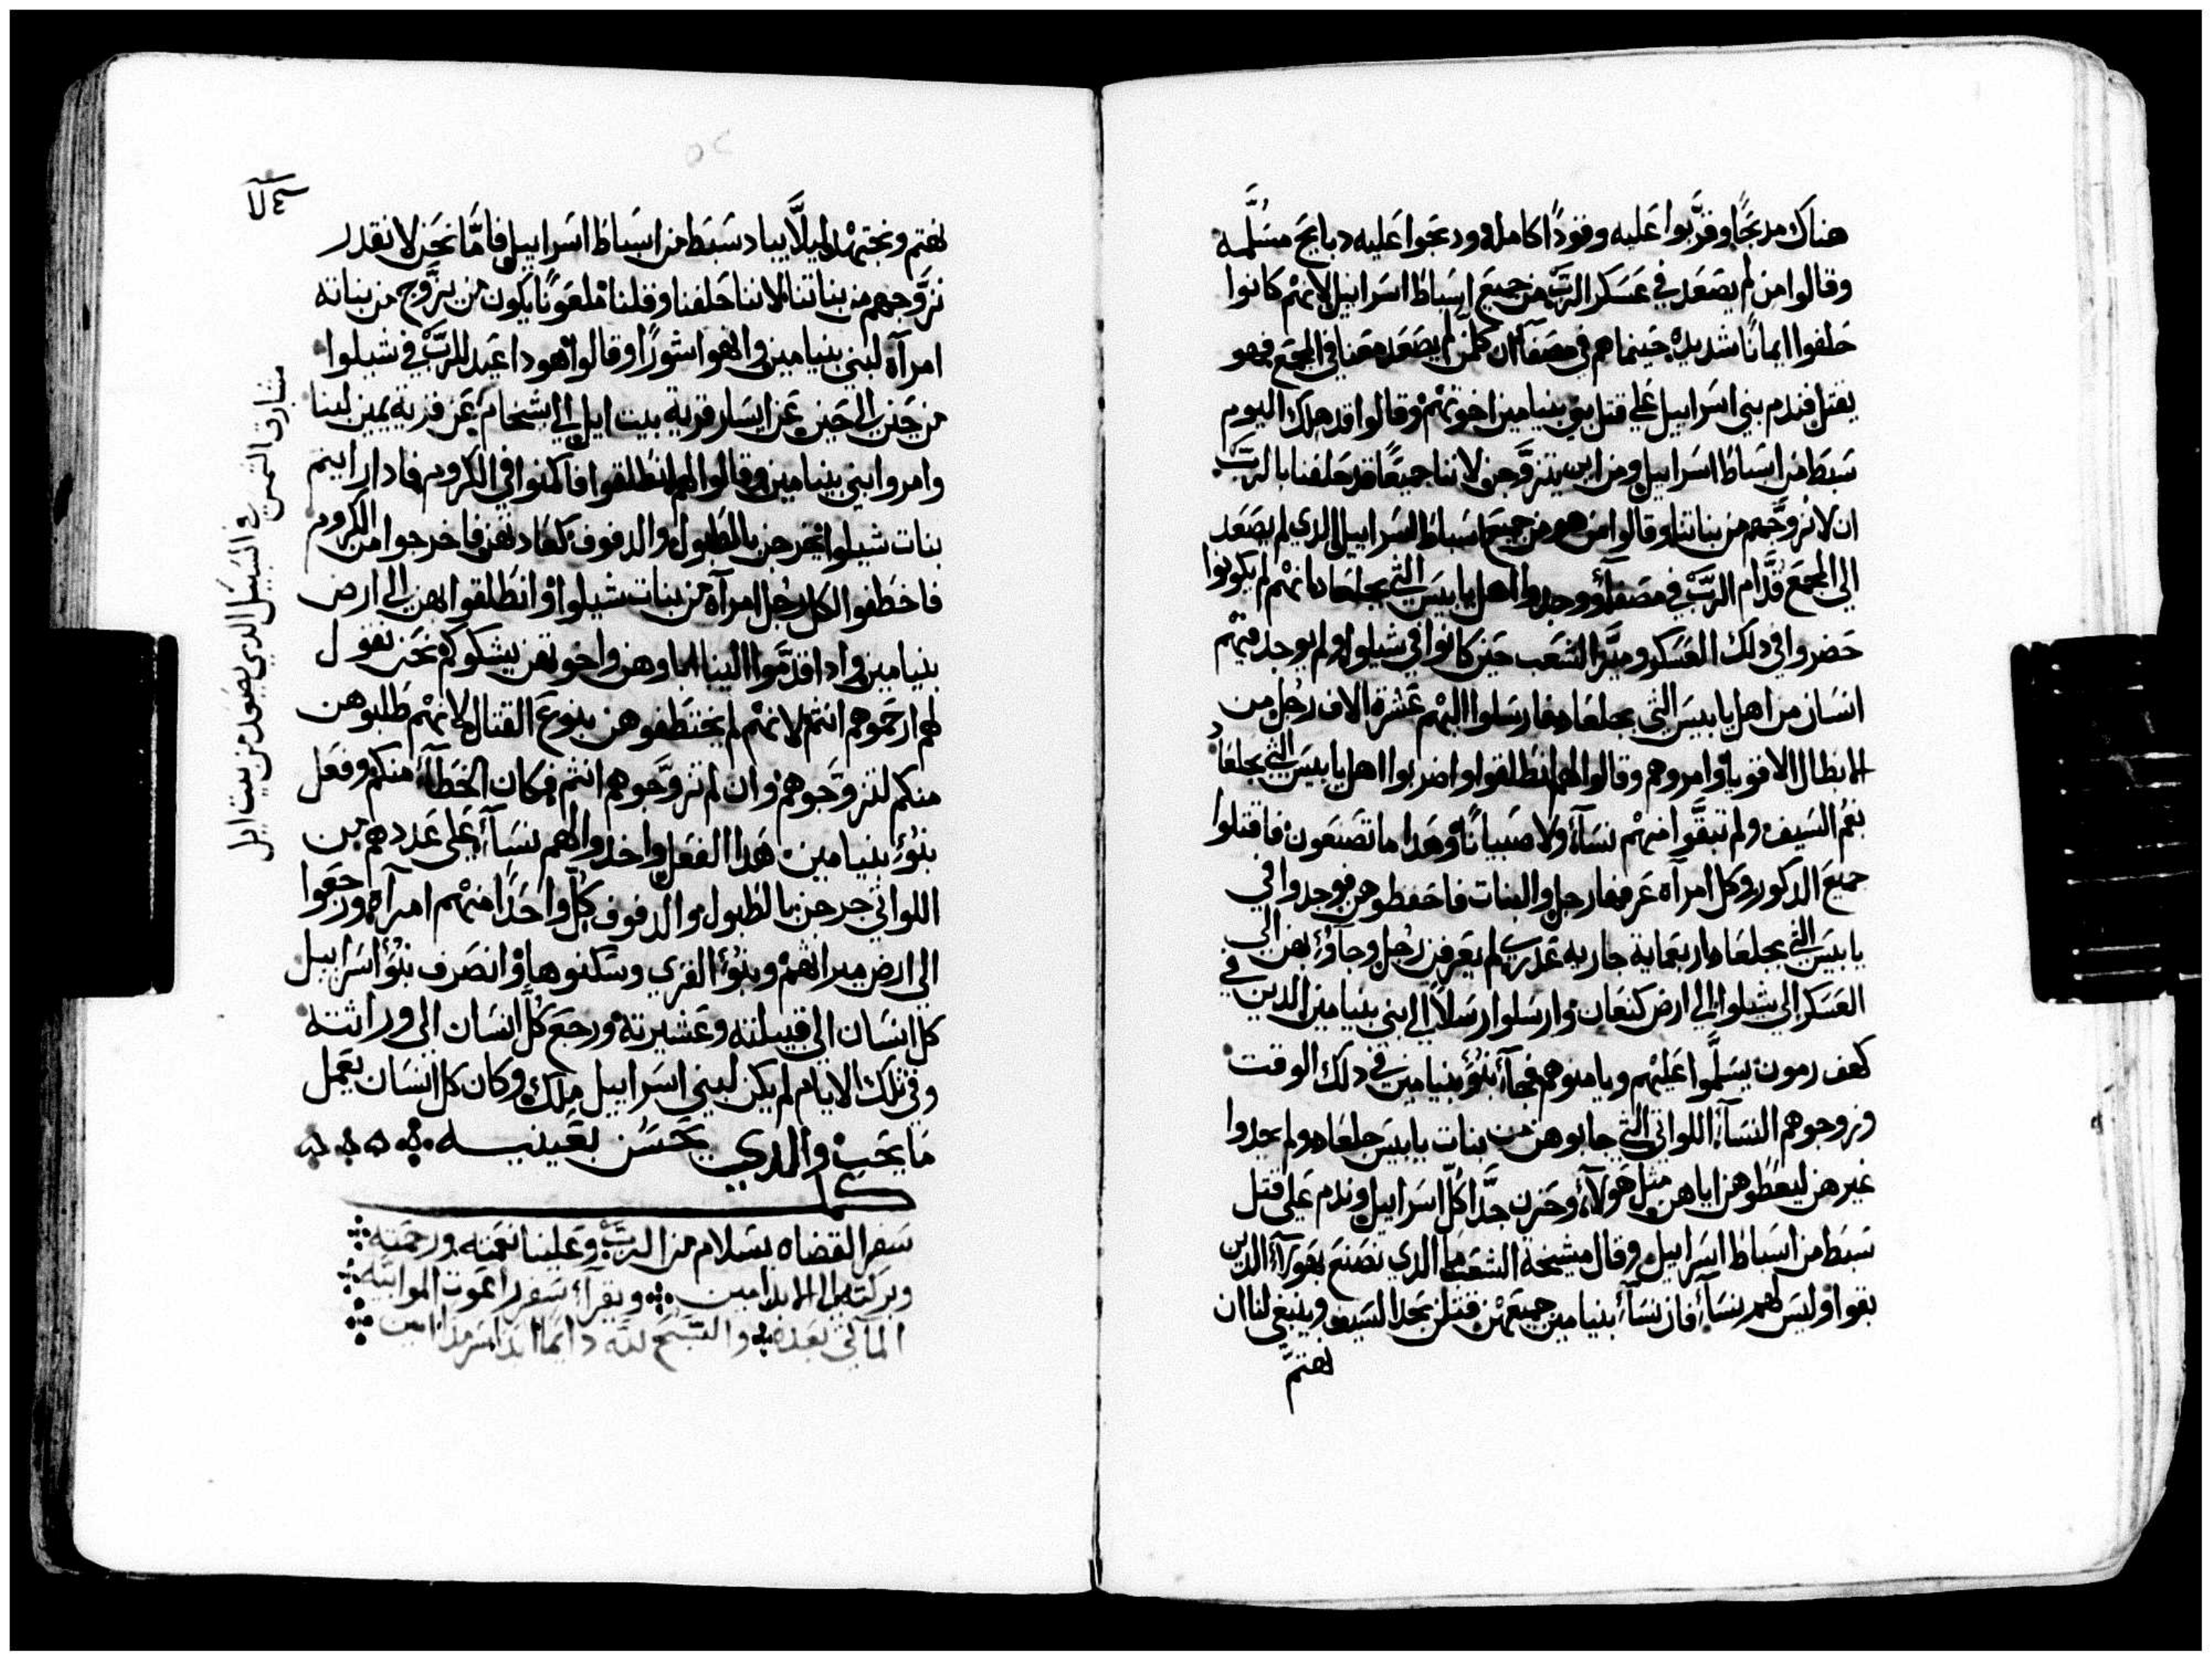 هناك مدبحًا وقرَّبوا عليه وقودًا كامله ودبحوا عليه دبايح مسَلَّمه
وقالوا من لم يصعد في عسكر الربّ من جميع اسباط اسراييل لانهم كانوا
حلفوا ايمانًا شديده حينما هم في مصفاه ان كلمن لم يصعد معنا في المجمع فهو
يقتل فندم بني اسراييل على قتل بني بنيامين اخوتهم وقالوا قد هلك اليوم
سبط من اسباط اسراييل ومن اين يتزوَّجن لاننا جميعًا قد حلفنا بالربّ
ان لا نزوَّجهم من بناتنا وقالوا من هو من جميع اسباط اسراييل الدي لم يصعد
الي المجمع قدَّام الربّ في مصفاه ووجدوا اهل يابيس التي بجلعاد انهم لم يكونوا
حضروا في دلك العسكر وميَّزا الشعب حين كانوا في شيلوا ولم يوجد فيهم
انسان من اهل يابيس التي بجلعاد فارسلوا اليهم عشرة الاف رجل من
الابطال الاقويا وامروهم وقالوا لهم انطلقوا واضربوا اهل يابيس التي بجلعاد
بفم السيف ولم تبقَّوا منهم نسآء ولا صبيانًا وهدا ما تصنعون فاقتلوا
جميع الدكور وكل امرآة عرفها رجل والبنات فاحفظوهن فوجدوا في
يابيس التي بجلعاد اربعماية جاريه عدري لم يعرفن رجل وجآؤا بهن الي
العسكر الي شيلوا الي ارض كنعان وارسلوا رسلاً الي بني بنيامين الدين في
كهف رمون يسلَّموا عليهم ويامنوهم فجآء بنؤ بنيامين في دلك الوقت
وزوجوهم النسآء اللواتي التي جابوهن من بنات يابيس جلعاد ولم يجدوا
غيرهن ليعطوهن اياهن مثل هولآء وحزن جدًّا كلّ اسراييل وندم على قتل
سبط من اسباط اسراييل وقال مشيخة الشعب ما الدي نصنع بهولآء الدين
بقوا وليس لهم نسآء فان نسآء بنيامين جميعهن قتلن بحد السيف وينبغي لنا ان
نهتمّ
نهتم ونجتهد ليلاَّ يباد سبط من اسباط اسراييل فامَّا نحن لا نقدر
نزوَّجهم من بناتنا لاننا حلفنا وقلنا ملعونًا يكون من يزوَّج من بناته
امرآة لبني بنيامين والهوا شورًا وقالوا هودا عيد للربّ في شيلوا
من حين الي حين عن ايسار قرية بيت ايل الي اشخام عن قرية يمين لبنا
وامروا بني بنيامين وقالوا لهم انطلقوا فاكمنوا في الكروم فادا رايتم
بنات شيلوا يخرجن بالطبول والدفوف كعادتهن فاخرجوا من الكروم
فاخطفوا لكل رجل امرآة من بنات شيلوا وانطلقوا بهن الي ارض
بنيامين وادا قدَّموا الينا اباوهن واخوتهن يشكوكم نحن نقول
لهم ارحموهم انتم لانهم لم يختطفوهن بنوع القتال لانهم طلبوهن
منكم لتزوَّجوهم وان لم تزوَّجوهم انتم فكان الخطآء منكم وفعل
بنؤ بنيامين هدا الفعل واخدوا لهم نسآء على عددهم من
اللواتي خرجن بالطبول والدفوف كلّ واحدًا منهم امرآة ورجعوا
الي ارض ميراثهم وبنؤا القري وسكنوها وانصرف بنؤ اسراييل
كل انسان الي قبيلته وعشيرته ورجع كلّ انسان الي وراثته
وفي تلك الايام لم يكن لبني اسراييل ملك وكان كل انسان يعمل
ما يحب والدي يحسن بعينيه
كمل
سفر القضاه بسلام من الربّ وعلينا نعمته ورحمته
وبركته الي الابد امين ويقرآء سفر راعوث الموابيه
الآتي بعده والتسبيح لله دايمًا ابدًا سرمدًا امين
مشارق الشمس في السبيل الدي يصعد من بيت ايل